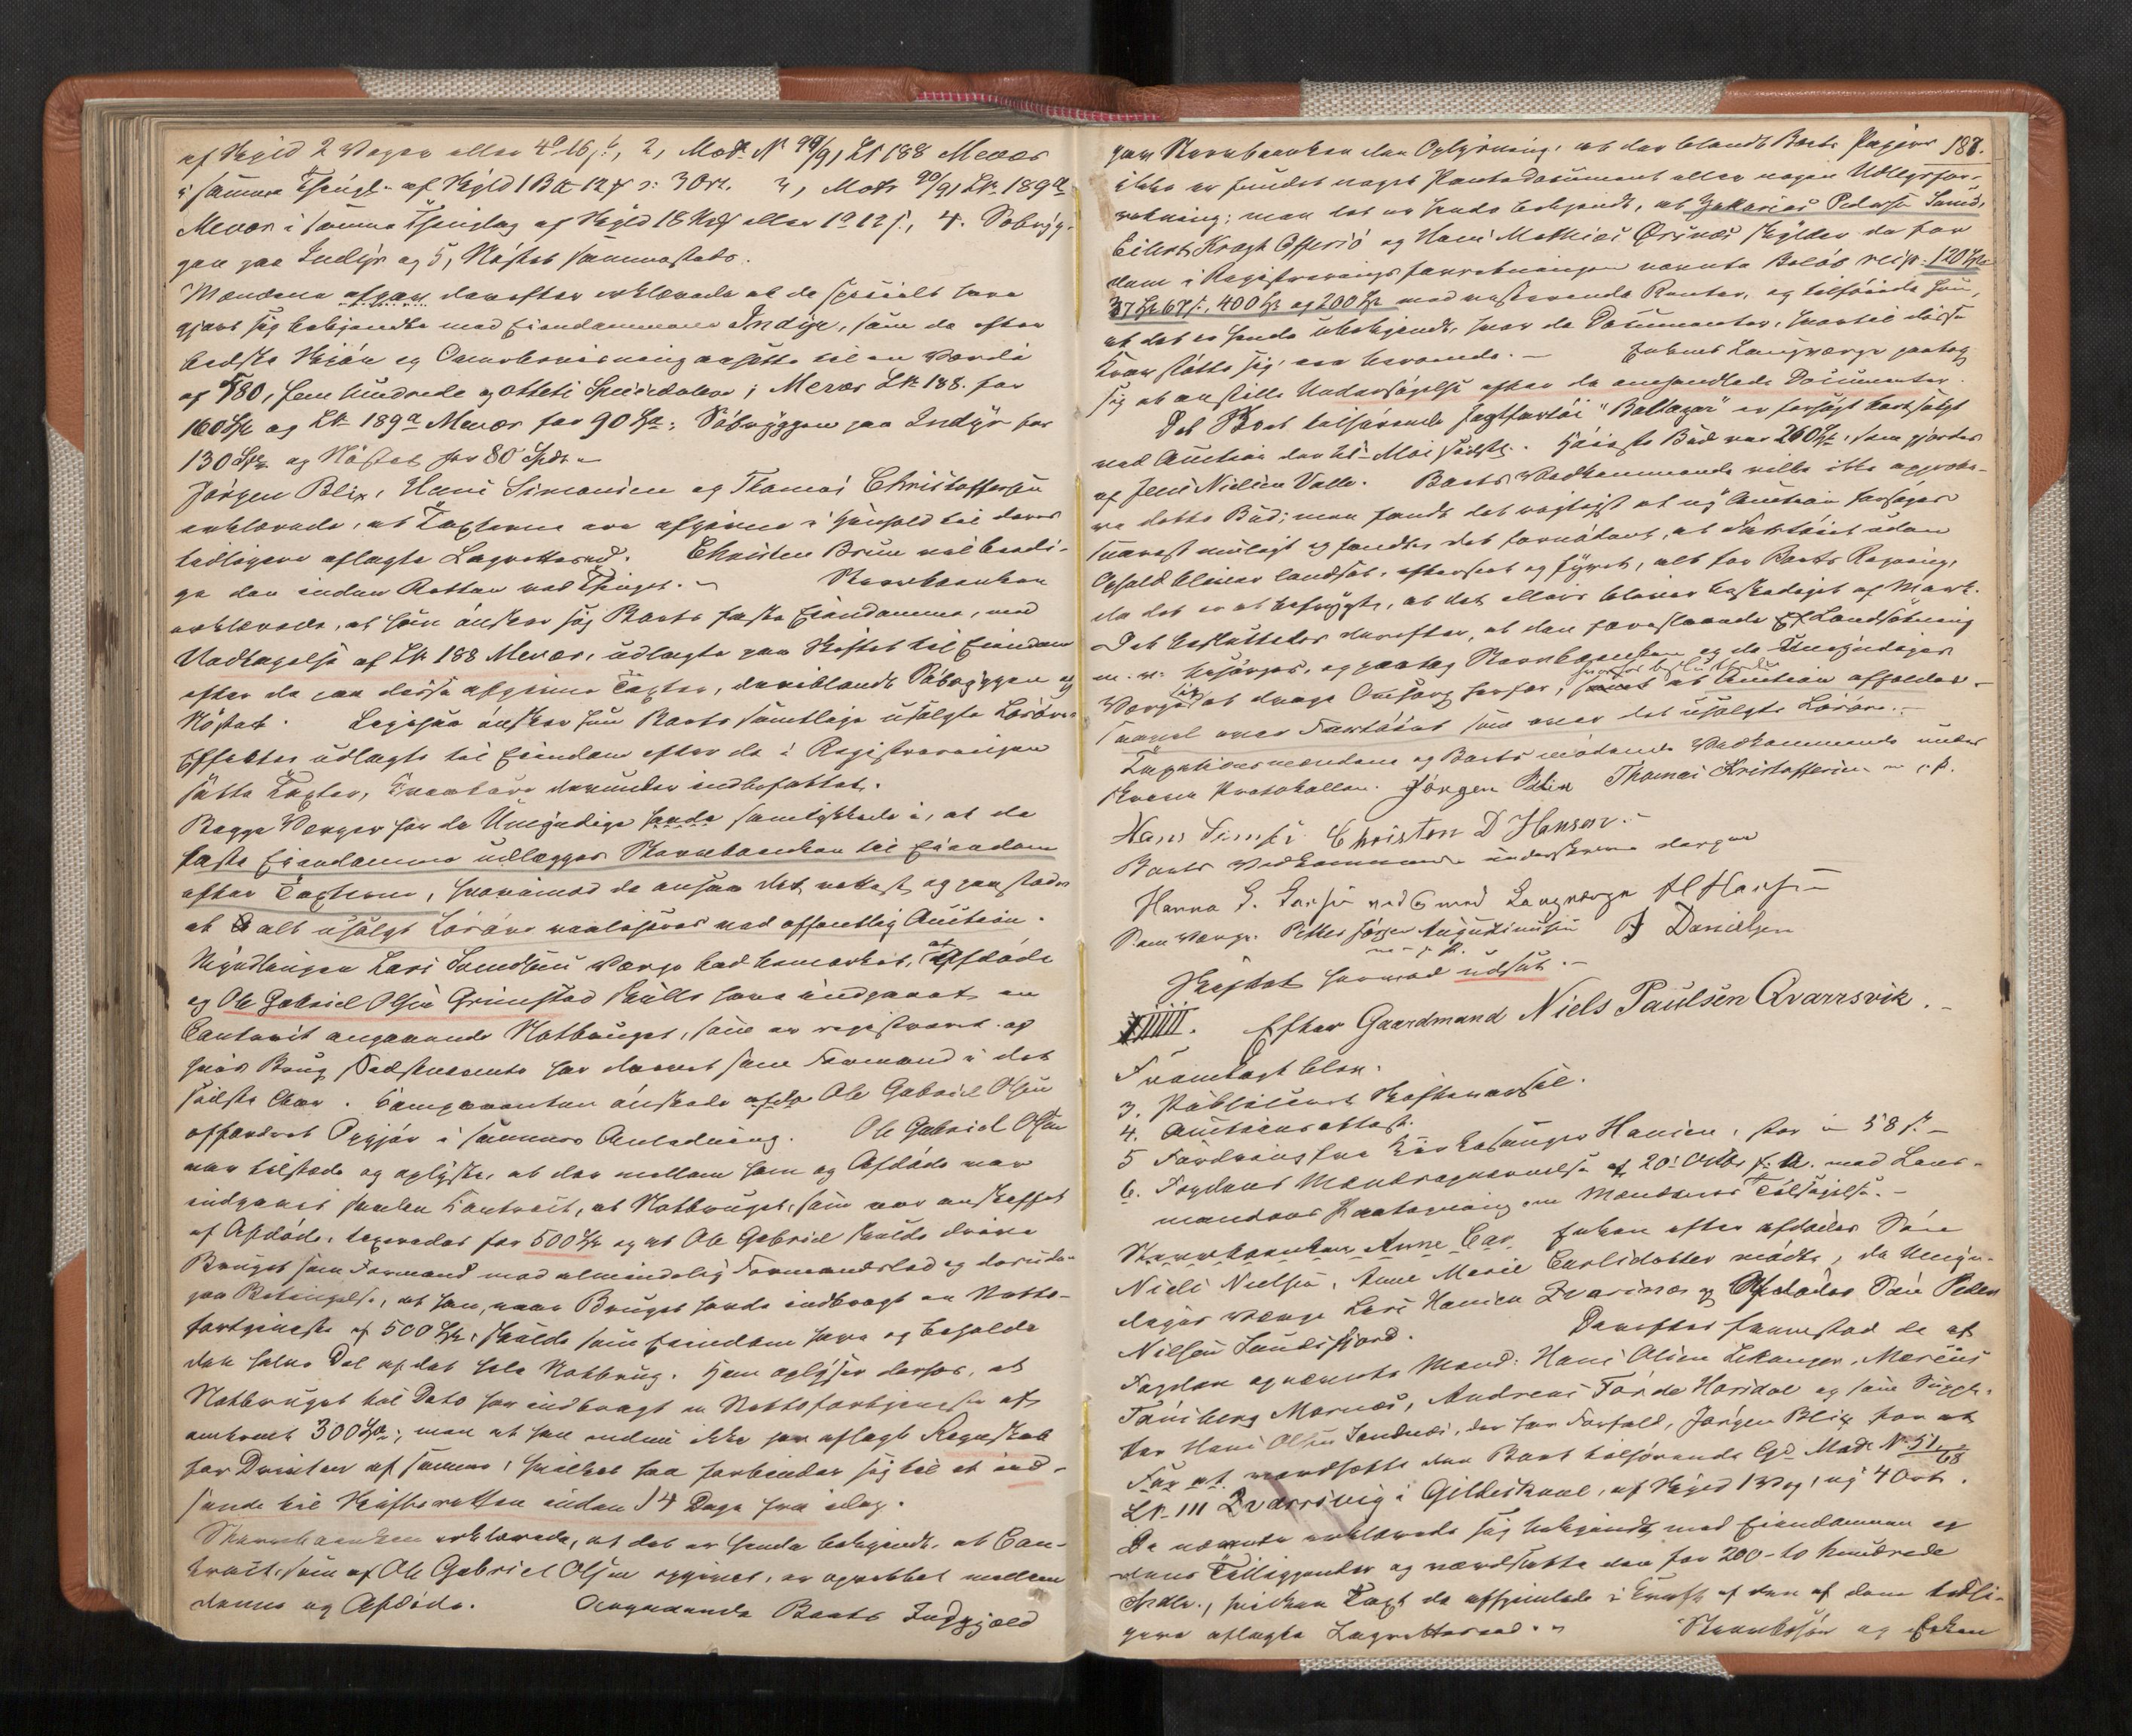 af Skyld 2 Voger eller 4 D 16 s., 2, Matr. N 99/91 Lb 188 Mevær
i samme Thingl. af Skyld 1 B 12 : 3 Ort. 3, Matr 90/91 Lb. 189a
Mevær i samme Thinglag af Skyld 18 eller 1 D 12 s., 4. Søbryg-
gen paa Indyr og 5, Nøstet sammesteds.
Mændene afgav derefter erklærede at de specielt have
gjort sig bekjendte med Eiendommene Indyr, som de efter
bedste Skjøn og Overbevisning ansætte til en Værdi
af 580, fem hundrede og otteti Speciedaler; Mevær Lb. 188. for
160 Spd og Lb. 189a Mevær for 90 Spd; Søbryggen paa Indyr for
130 Spd og Nøstet for 80 Spdr.
Jørgen Blix, Hans Simonsen og Thomas Christoffersen
erklærede, at Taxterne ere afgivne i Henhold til deres
tidligere aflagte Lagretteseed. Christen Brun vil beedi-
ge den inden Retten ved Thinget. Stervboenken
erklærede, at hun ønsker sig Boets faste Eiendomme, med
Undtagelse af Lb 188 Mevær, udlagte paa Skiftet til Eiendom
efter de paa disse afgivne Taxter, deriblandt Søbryggen og
Nøstet. Ligesaa ønsker hun Boets samtlige usolgte Løsøre
Effekter udlagte til Eiendom efter de i Registreringen
satte Taxter, derunder indbefattet.
Begge Værger for de Umyndige samtykkede i, at de
faste Eiendomme udlægges Stervboenken til Eiendom
efter Taxterne, hvorimod de ansaa det rettest og paastode
at alt usolgt Løsøre realiseres ved offentlig Auction.
Myndlingen Lars Svendsens Værge had bemærket, at Afdøde
og Ole Gabriel Olsen Grimstad skulle have indgaaet en
Contract angaaende Notbruget, som er registreret og
hvis Brug Sidstnævnte har været som Formand i det
sidste Aar. Comparenten ønskede Ole Gabriel Olsen
affordret Opgjør i saamaade Anledning. Ole Gabriel Olsen
var tilstede og oplyste, at der mellem ham og Afdøde var
indgaaet saadan Contract, at Notbruget, som var anskaffet
af Afdøde, taxeredes for 500 Spd og at Ole Gabriel skulde drive
Bruget som Formand med almindelig Formandslod og desuden
paa Betingelse, at han, naar Bruget havde indbragt en Netto-
fortjeneste af 500 Spd, skulde som Eiendom have og beholde
den halve Del af det hele Notbrug. Han oplyser derhos, at
Notbruget til Dato har indbragt en Nettofortjeneste af
omtrent 300 Spd; men at han endnu ikke har aflagt Regnskab
for Driften af samme, hvilket han forbinder sig til at ind-
sende til Skifteretten inden 14 Dage fra idag.
Stervboenken erklærede, at det er hende bekjendt, at Con-
tract, som af Ole Gabriel Olsen opgivet, er oprettet mellem
denne og Afdøde. Angaaende Boets Indgjæld
187.
gav Stervboenken den Oplysning, at der blandt Boets Papirer
ikke er fundet noget Pantedocument eller nogen Udlægsfor-
retning; men det er hende bekjendt, at Zakarias Pedersen Sund,
Eilert Kragh Osterø og Hans Mathias Ørsnes skylder de for
dem i Registreringsforretningen nævnte Beløb resp: 120 Spd
37 Spd 67 s., 400 Spd og 200 Spd med resterende Renter, og tilføiede hun,
at det er hende ubekjendt, hvor de Documenter, hvortil disse
Krav støtte sig, ere beroende. Enkens Laugværge paatog
sig at anstille Undersøgelse efter de omhandlede Documenter.
Det Boet tilhørende Jagtfartøi "Baltazar" er forsøgt bortsolgt
ved Auction den 21 Mai sidstl. Høieste Bud var 260 Spd, som gjordes
af Jens Nielsen Valle. Boets Vedkommende vilde ikke approbe-
re dette Bud; men fandt det rigtigst at ny Auction forsøges
snarest muligt og fandtes det fornødent, at Fartøiet uden
Ophold bliver landsat, efterseet og fyret, alt for Boets Regning,
da det er at befrygte, at det ellers bliver beskadiget af Mark.
Det besluttedes derefter, at den foreslaaende Landsætning
m. v. besørges, og paatog Stervboenken og de Umyndiges
Værger sig at drage Omsorg herfor, at Auction afholdes
saavel over Fartøiet som over det usolgte Løsøre.
Taxationsmændene og Boets mødende Vedkommende under-
skreve Protokollen. Jørgen Blix Thomas Kristoffersen m. p. P.
Hans Simse Christen D Hansen.
Boets Vedkommende underskreve derpaa
Hanna E. med Laugværge H Hansen
Som Værge. Petter Jørgen Augustinussen J Danielsen
m. p. P.
Skiftet herved udsat.
Efter Gaardmand Niels Paulsen Qvarsvik.
Fremlagt blev.
3. Publiceret Skiftevarsel.
4. Auctionsattest.
5 Fordring fra Kirkesanger Hansen, stor 58 s.
6. Fogdens Mændopnævnelse af 20 Octbr f. A. med Lens-
mandens Paategning om Mændenes Tilsigelse.
Stervboenken Anne Car. Enken efter afdødes Søn
Niels Nielsen, Anne Marie Carlsdatter mødte, de Umyn-
diges Værge Lars Hansen Zvarsnes og Afdødes Søn Peder
Nilsen Sundsfjord. Derefter fremstod de af
Fogden opnævnte Mænd: Hans Olsen Lekanger, Marcus
Tønsberg Mornes, Andreas Førde Horsdal og som Supple-
for Hans Olsen Sandnes, der har Forfald, Jørgen Blix for at
For at værdsætte den Boet tilhørende Gd Matr. N 51/68
Lb 111 Qvarsvig i Gildeskaal, af Skyld 1 Vog, og 4 Ort.
De nævnte erklærede sig bekjendt med Eiendommen og
dens Tilliggender og værdsatte den for 200 - to hundrede
Spdlr., hvilken Taxt de afhjemlede i Kraft af den af dem tidli-
gere aflagte Lagretteseed. Stervbosøn og Enken